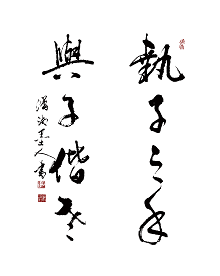 執子之手
與子偕老